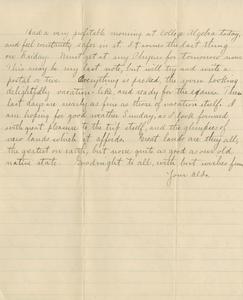 Had a very profitable morning at College Algebra today,
and feel entirely safer in it. It comes the last thing
on Friday. Must get at my Physics for tomorrow now.
This may be my last note, but will try and write a
postal or two. Everything is packed, the room looking
delightfully vacation-like, and ready for the These
last days are nearly as fine as those of vacation itself. I
am hoping for good weather Sunday, as I look forward,
with great pleasure to the trip itself, and the glimpses of
new lands which it affords. Great lands are they all,
the greatest on earth, but none quite as good as our old
native state. Goodnight to all, with best wishes from
Your